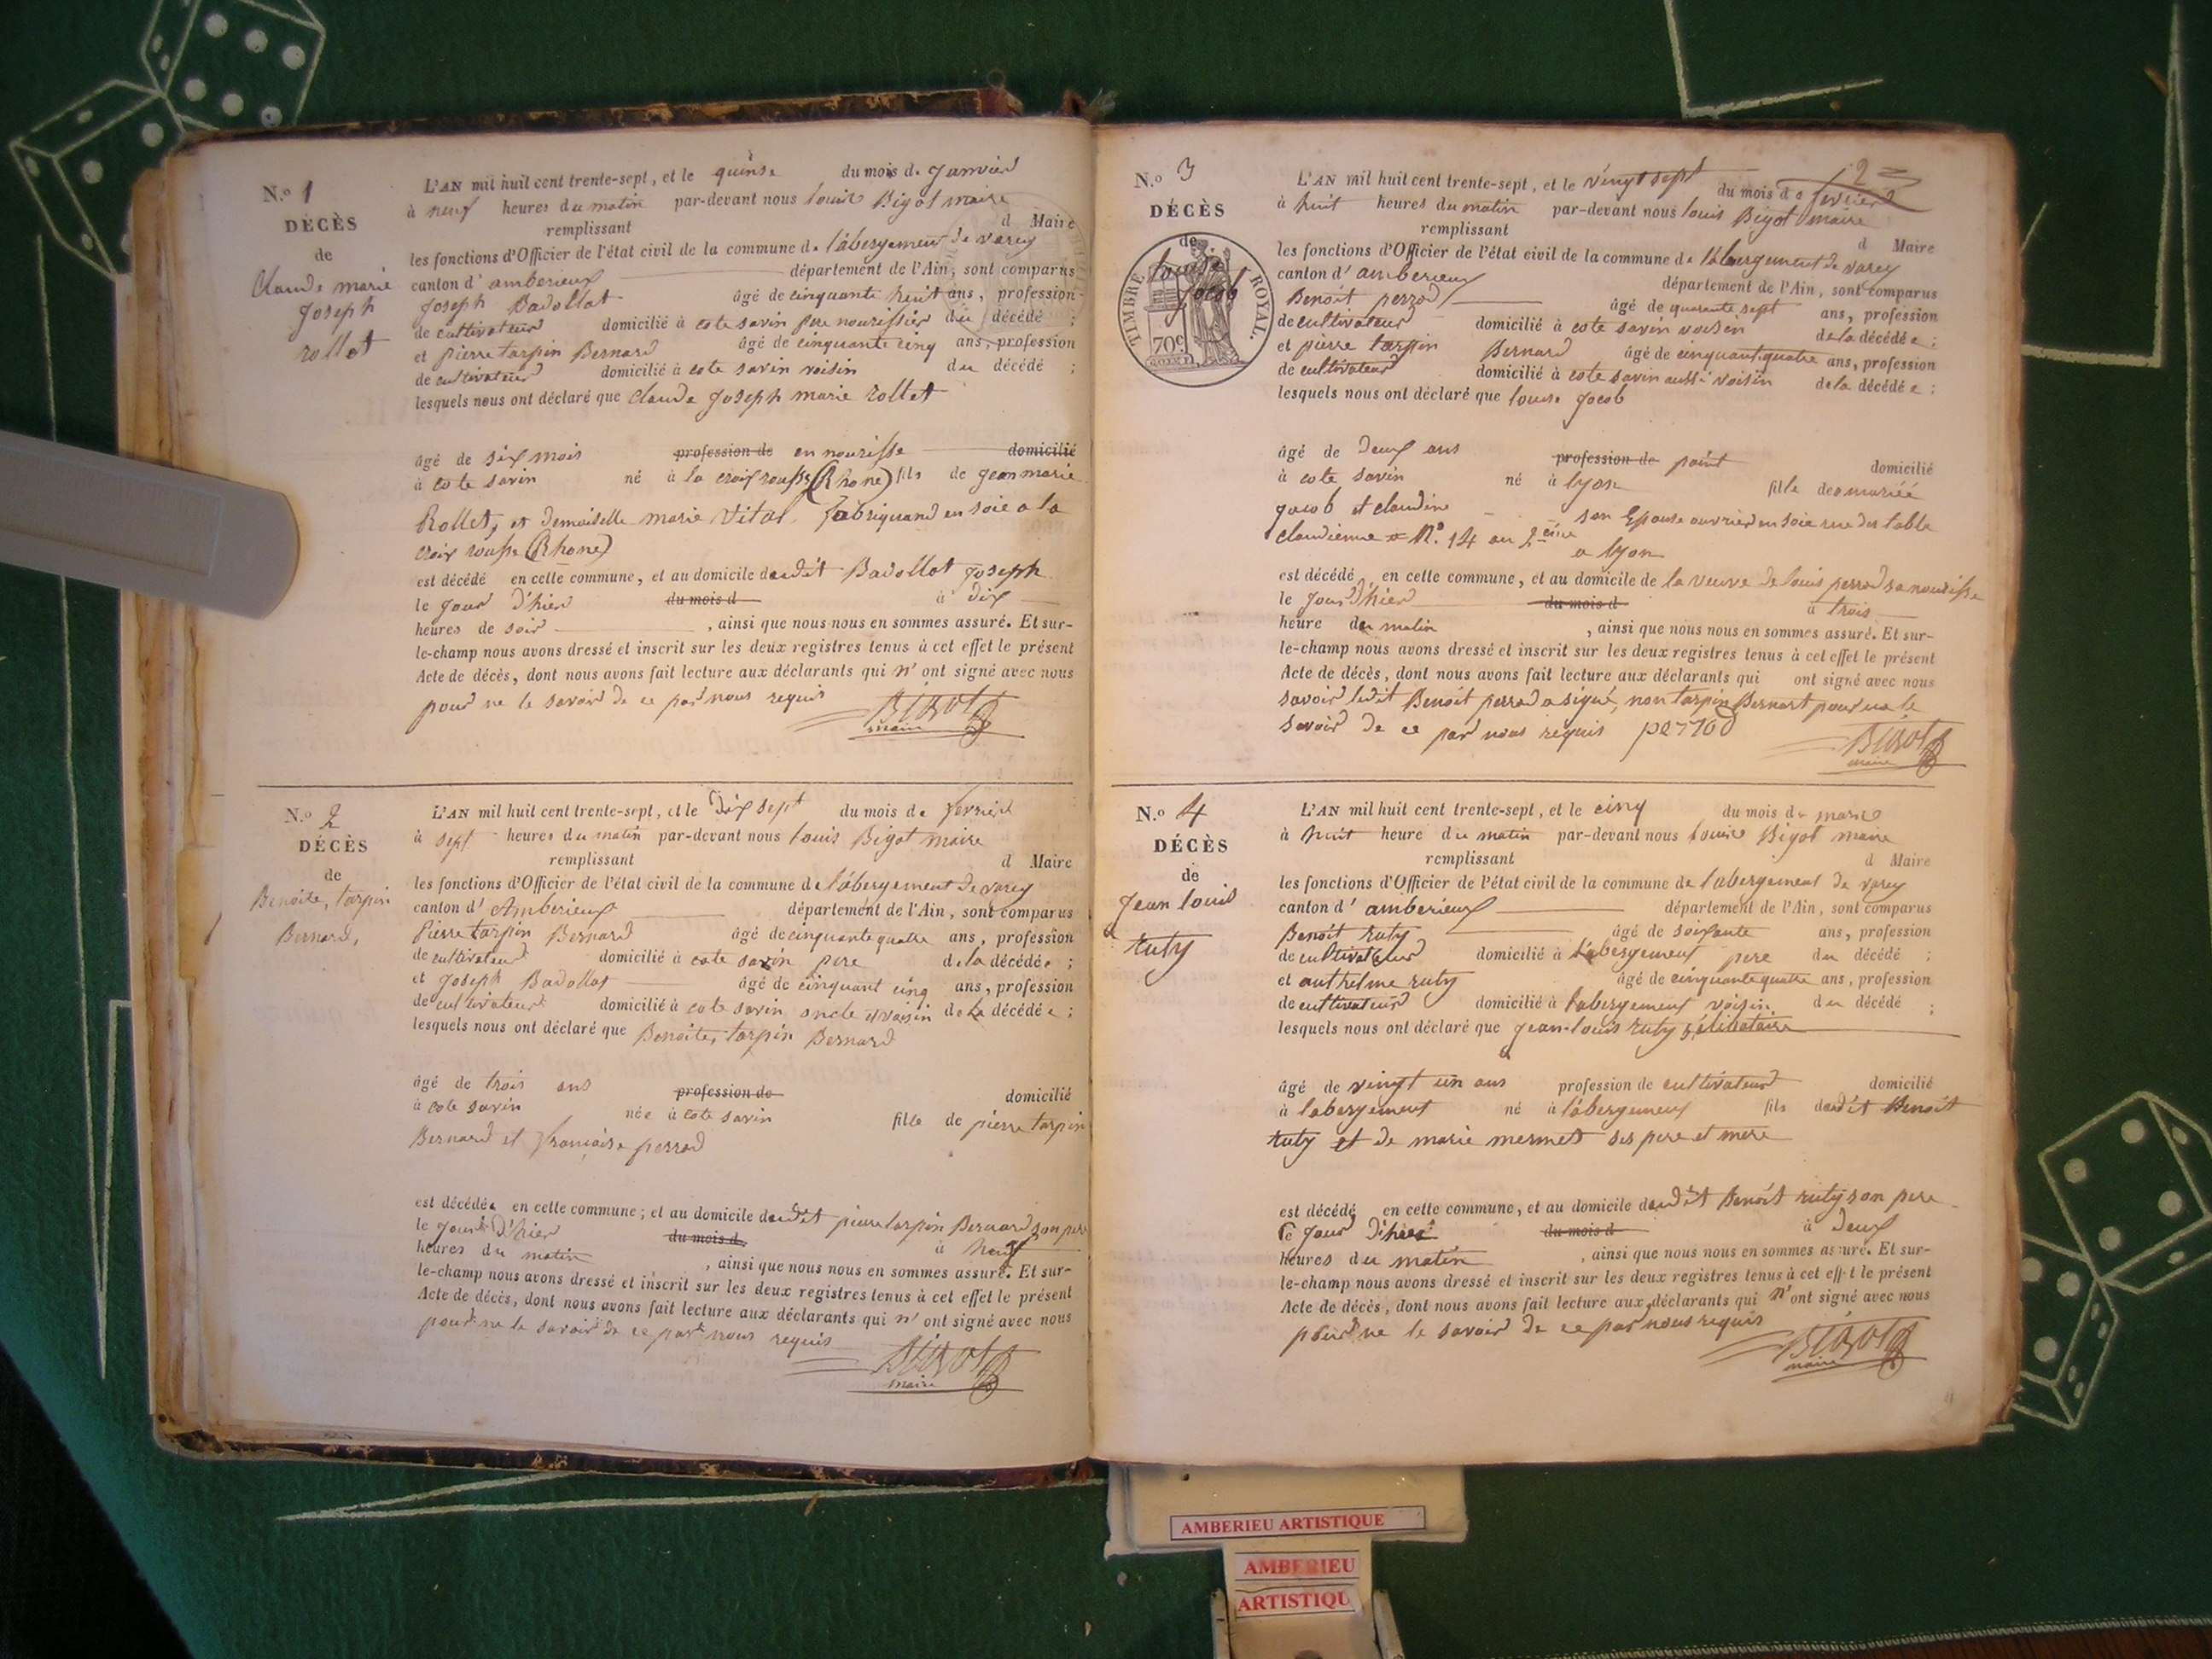 N.º 1
DÉCÈS
de
Claude marie
Joseph
rollet
L'AN mil huit cent trente-sept, et le quinse du mois de Janvier
à neuf heures du matin par-devant nous louis Bigot maire
remplissant d Maire
les fonctions d'Officier de l'état civil de la commune de l'abergement de varey
canton d' amberieux département de l'Ain, sont comparus
Joseph Badollat âgé de cinquante huit ans, profession
de cultivateur domicilié à cote savin pere nourissier du décédé ;
et pierre tarpin Bernard âgé de cinquante cinq ans, profession
de cultivateur domicilié à cote savin voisin du décédé ;
lesquels nous ont déclaré que claude Joseph marie rollet
âgé de six mois profession de en nourisse domicilié
à cote savin né à la croix rousse (Rhone) fils de jean marie
Rollet, et demoiselle marie Vital fabriquand en soie a la
croix rousse (Rhone)
est décédé en cette commune, et au domicile dudit Badollat joseph
le jour d'hier du mois d à dix
heures de soir , ainsi que nous nous en sommes assuré. Et sur-
le-champ nous avons dressé et inscrit sur les deux registres tenus à cet effet le présent
Acte de décès, dont nous avons fait lecture aux déclarants qui n' ont signé avec nous
pour ne le savoir de ce par nous requis
Bigot
maire
N.º 2
DÉCÈS
de
Benoite, tarpin
Bernard,
L'AN mil huit cent trente-sept, et le Dix sept du mois de fevrier
à sept heures du matin par-devant nous louis Bigot maire
remplissant d Maire
les fonctions d'Officier de l'état civil de la commune de l'abergement de varey
canton d' Amberieux département de l'Ain, sont comparus
Pierre tarpin Bernard âgé de cinquante quatre ans, profession
de cultivateur domicilié à cote savin pere de la décédée ;
et Joseph Badollat âgé de cinquant cinq ans, profession
de cultivateur domicilié à cote savin oncle et voisin de la décédée ;
lesquels nous ont déclaré que Benoite, tarpin Bernard
âgé de trois ans profession de domicilié
à cote savin née à cote savin fille de pierre tarpin
Bernard et françoise perrod
est décédée en cette commune; et au domicile dudit pierre tarpin Bernard son pere
le jour d'hier du mois d à neuf
heures du matin , ainsi que nous nous en sommes assuré. Et sur-
le-champ nous avons dressé et inscrit sur les deux registres tenus à cet effet le présent
Acte de décès, dont nous avons fait lecture aux déclarants qui n' ont signé avec nous
pour ne le savoir de ce par nous requis
Bigot
maire
2
N.º 3
DÉCÈS
de
louise
jacob
TIMBRE ROYAL.
70c
L'AN mil huit cent trente-sept, et le vingt sept du mois de fevrier
à huit heures du matin par-devant nous louis Bigot maire
remplissant d Maire
les fonctions d'Officier de l'état civil de la commune de l'abergement de varey
canton d' amberieux département de l'Ain, sont comparus
Benoit perrod âgé de quarante sept ans, profession
de cultivateur domicilié à cote savin voisin de la décédée ;
et pierre tarpin Bernard âgé de cinquant quatre ans, profession
de cultivateur domicilié à cote savin aussi voisin de la décédée ;
lesquels nous ont déclaré que louise jacob
âgé de Deux ans profession de point domicilié
à cote savin né à lyon fille de
jacob et claudine son Epouse ouvrier en soie rue des table
claudienne N.º 14 au 2
a lyon
est décédé en cette commune, et au domicile de la veuve de louis perrod sa nourisse
le jour d'hier du mois d à trois
heure du matin , ainsi que nous nous en sommes assuré. Et sur-
le-champ nous avons dressé et inscrit sur les deux registres tenus à cet effet le présent
Acte de décès, dont nous avons fait lecture aux déclarants qui ont signé avec nous
savoir ledit Benoit perrod a signé, non tarpin Bernart pour ne le
savoir de ce par nous requis perrod
Bigot
maire
N.º 4
DÉCÈS
de
Jean louis
ruty
L'AN mil huit cent trente-sept, et le cinq du mois de mars
à huit heure du matin par-devant nous louis Bigot maire
remplissant d Maire
les fonctions d'Officier de l'état civil de la commune de l'abergement de varey
canton d' amberieux département de l'Ain, sont comparus
Benoit ruty âgé de soixante ans, profession
de cultivateur domicilié à l'abergement pere du décédé ;
et anthelme ruty âgé de cinquante quatre ans, profession
de cultivateur domicilié à l'abergement voisin du décédé ;
lesquels nous ont déclaré que jean-louis ruty célibataire
âgé de vingt un ans profession de cultivateur domicilié
à labergement né à l'abergement fils dudit Benoit
ruty et de marie mermet ses pere et mere
est décédé en cette commune, et au domicile dudit Benoit ruty son pere
le jour d'hier du mois d à deux
heures du matin , ainsi que nous nous en sommes assuré. Et sur-
le-champ nous avons dressé et inscrit sur les deux registres tenus à cet effet le présent
Acte de décès, dont nous avons fait lecture aux déclarants qui n' ont signé avec nous
pour ne le savoir de ce par nous requis
Bigot
maire
AMBERIEU ARTISTIQUE
AMBERIEU
ARTISTIQU